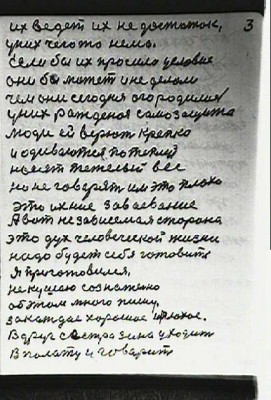 3
их ведет их не достаток,
у них чегото нема.
Если бы их просило деловне
они бы может и не делали
чем они сегодня огородились
у них рожденая самозащита
Люди ей верют крепко
и одиваются потеплу
носят тежолый вес
но не говерят им это плохо
это ихние завоевание
А вот не зависемая сторона
это дух человеческой жизни
надо будет себя готовить
Я приготовился,
не кушаю сознателно
об этом много пишу,
за каждае хорошое и плохое.
Вдруг сестра зина уходит
В палату и говарит